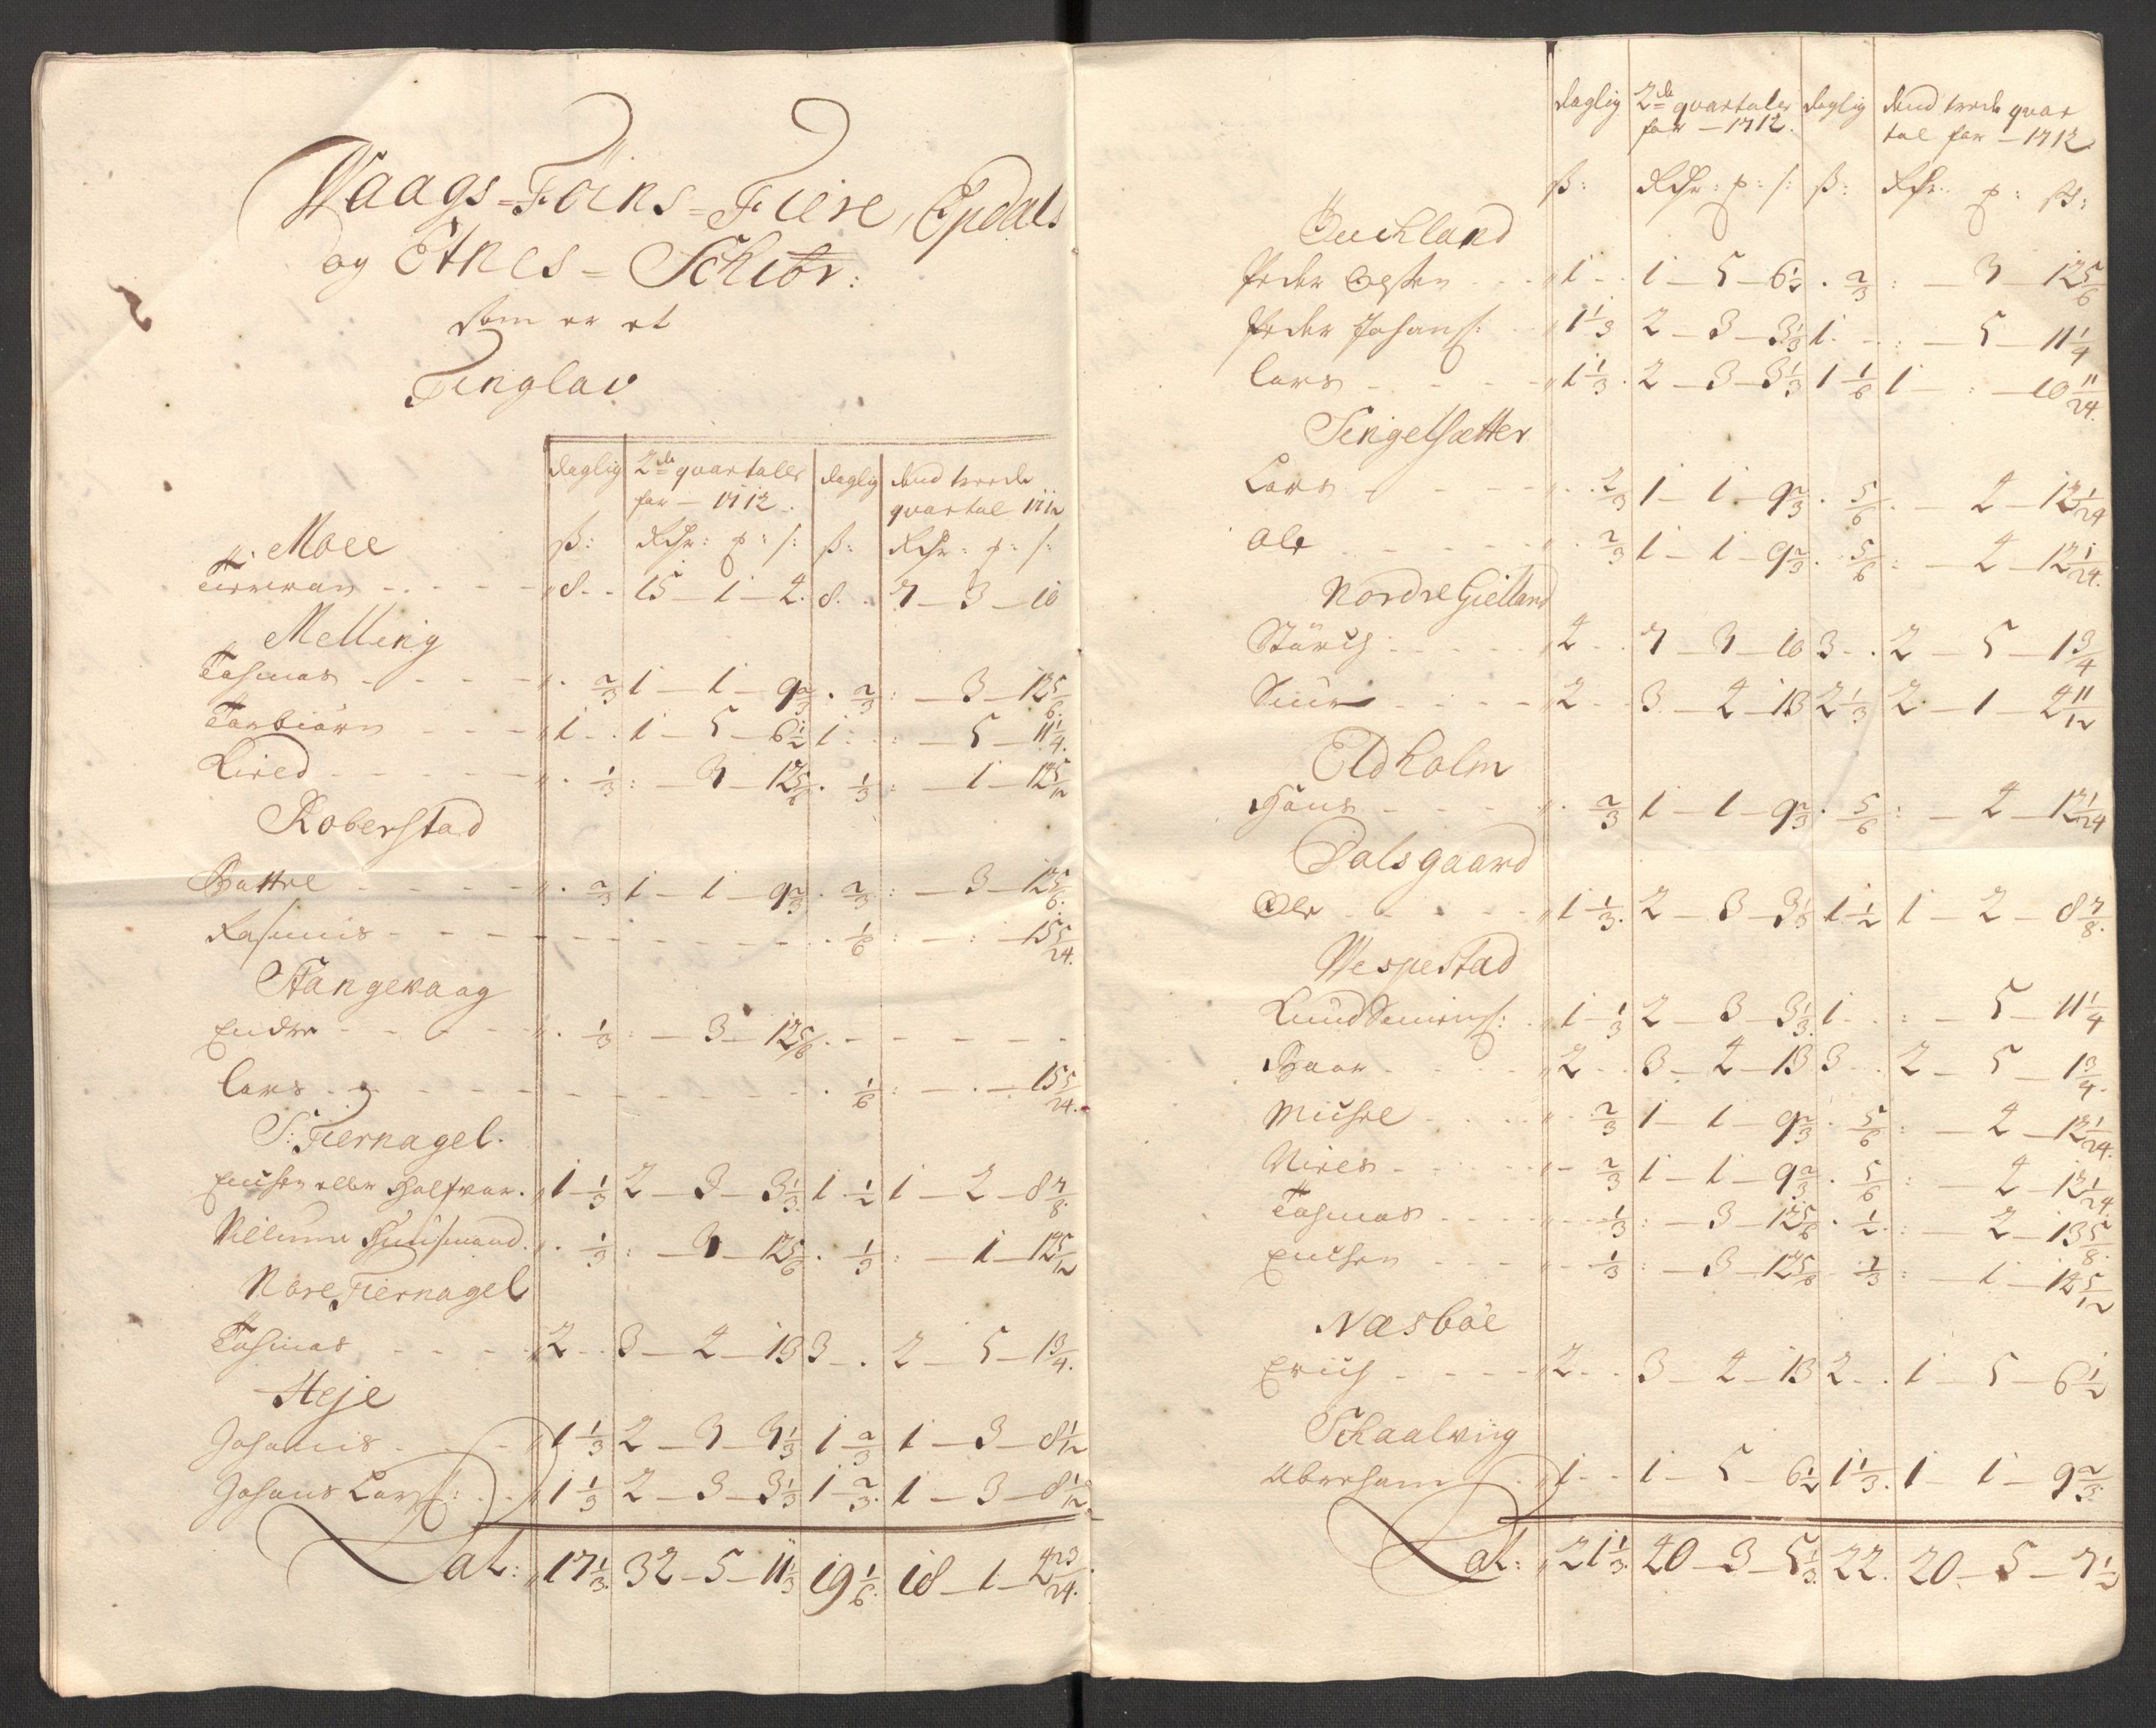 Waags = Föins = Fiere, Epdals
og Etnes = Schibr:
som er et
Tinglav
daglig 2de quartaler for – 1712. daglig dend tredie quartal 1712
ß: Rdr: ſ: ß: Rdr: ſ:
Moee
8. 15 – 1 – 2. 8. 7 – 3 – 10
Melling
Tosmas 2/3 1 – 1 – 9 2/3. 2/3: – 3 – 12 5/6.
Torbiörn 1. 1 – 5 – 6 1/2 1. : – 5 – 11 1/4.
1/3: – 3 – 12 5/6. 1/3: – 1 – 12 5/12
Roberstad
Battel 2/3 1 – 1 – 9 2/3. 2/3: – 3 – 12 5/6.
Rasmus 1/6: – : – 15 5/24.
Stangevaag
Endre 1/3: – 3 – 12 5/6.
Lars 1/6: – . – 15 5/24.
S: Fiernagel.
Knudsen eller Halfvor. 1 1/3 2 – 3 – 3 1/3. 1 1/2 1 – 2 – 8 7/8.
Villum Huusmand. 1/3: – 3 – 12 5/6. 1/3: – 1 – 12 5/12
Nore Fiernagel
Tosmas 2. 3 – 2 – 13 3. 2 – 5 – 1 3/4.
Heje
Johanis 1 1/3 2 – 3 – 3 1/3 1 2/3 1 – 3 – 8 1/12
Johans Lars: 1 1/3 2 – 3 – 3 1/3 1 2/3. 1 – 3 – 8 1/12.
Lat: 17 1/3. 32 – 5 – 11 1/3 19 1/6. 18 – 1 – 2 23/24.
daglig 2de quartaler for – 1712. daglig dend tredie quartal for – 1712
ß: Rdr: ſ: ß: Rdr: ß:
Buchland
Peder 1. 1 – 5 – 6 1/2. 2/3: – 3 – 12 5/6
Peder Johans: 1 1/3 2 – 3 – 3 1/3 1. : – 5 – 11 1/4
Lars 1 1/3. 2 – 3 – 3 1/3 1 1/6 1 – : – 10 11/24.
Singelsætter
Lars 2/3 1 – 1 – 9 2/3. 5/6. – 2 – 12 1/24
Ole 2/3 1 – 1 – 9 2/3. 5/6: – 2 – 12 1/24.
Nordre Gielland
Störch 4. 7 – 3 – 10 3. 2 – 5 – 1 3/4
Siur 2. 3 – 2 – 13 2 1/3 2 – 1 – 2 11/12
Eldholm
Hans 2/3 1 – 1 – 9 2/3. 5/6: – 2 – 12 1/24
Dalsgaard
Ole 1 1/3. 2 – 3 – 3 1/3 1 1/2 1 – 2 – 8 7/8.
Wespestad
Knud 1 1/3 2 – 3 – 3 1/3. 1. : – 5 – 11 1/4
Haar 2. 3 – 2 – 13 3. 2 – 5 – 1 3/4.
Michel 2/3 1 – 1 – 9 2/3. 5/6: – 2 – 12 1/24.
Nires 2/3 1 – 1 – 9 2/3. 5/6: – 2 – 12 1/24.
Tosmas 1/3: – 3 – 12 5/6. 1/2: – 2 – 13 5/8.
Knudsen 1/3: – 3 – 12 5/6. 1/3: – 1 – 12 5/12
Næsböe
Erich 2. 3 – 2 – 13 2. 1 – 5 – 6 1/2
Schaalvig
Abreham 1. 1 – 5 – 6 1/2 1 1/3. 1 – 1 – 9 2/3.
Lat: 21 1/3. 40 – 3 – 5 1/3. 22. 20 – 5 – 7 1/2